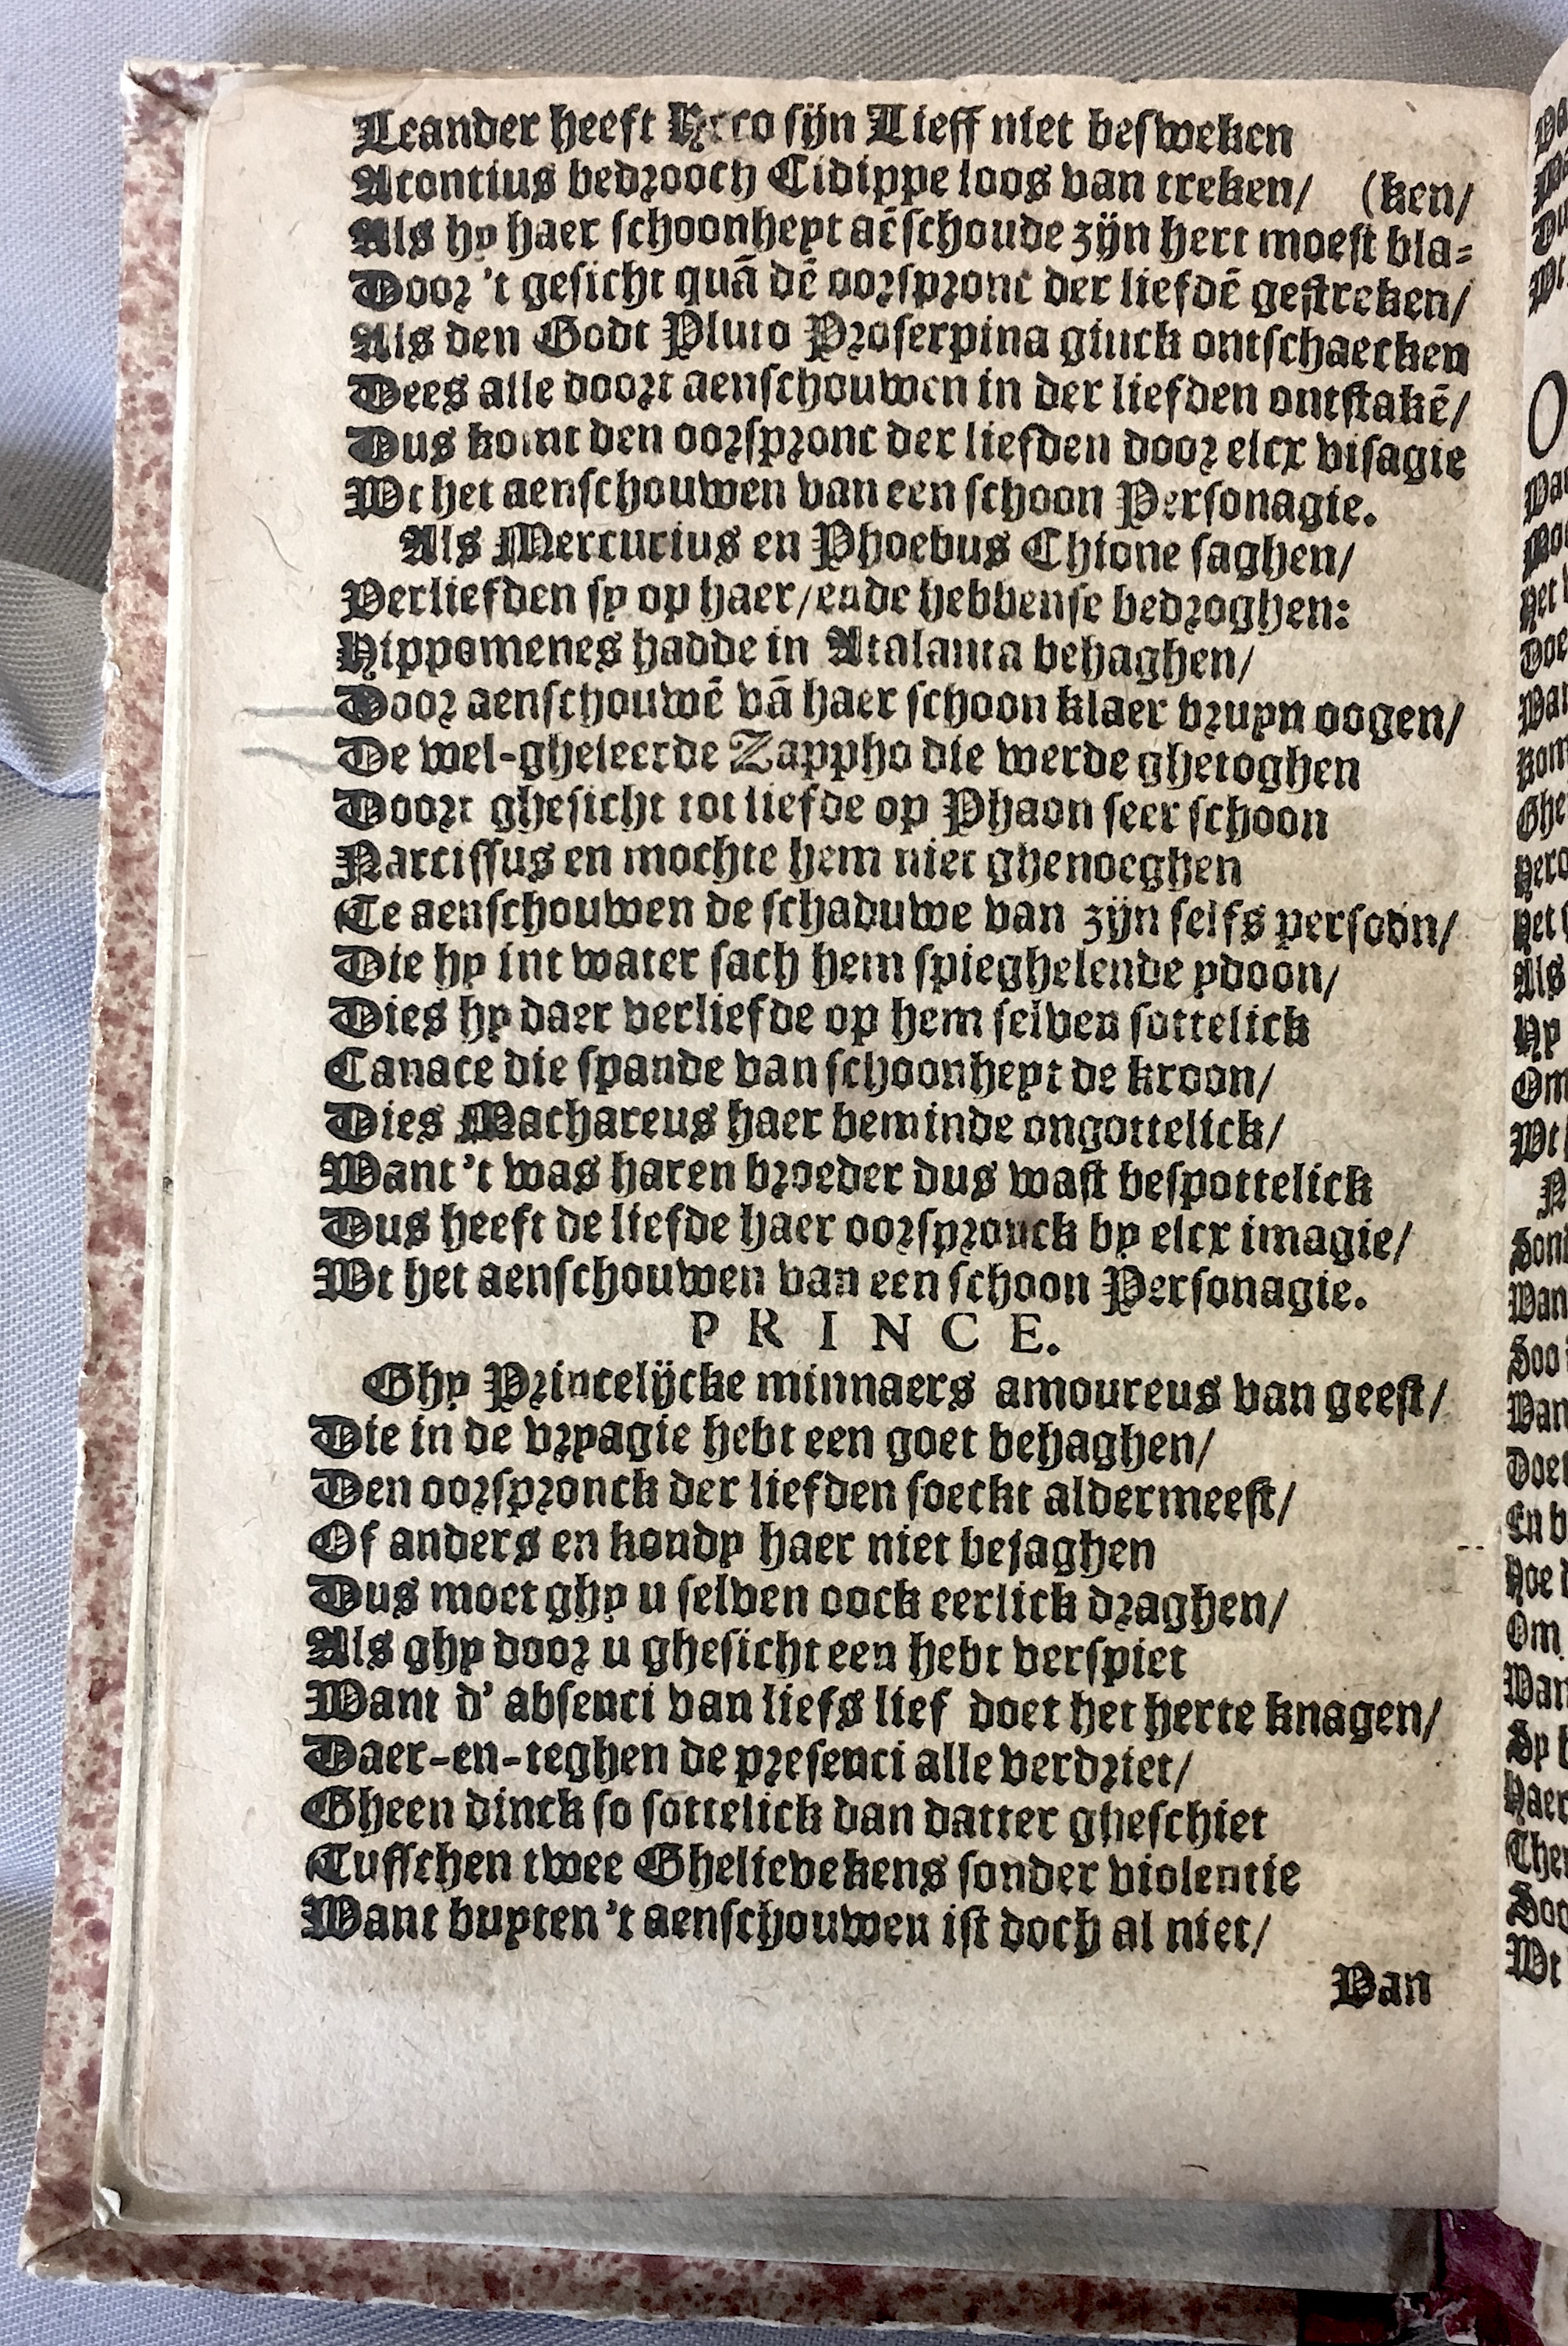 Leander heeft Hero sijn Lieff niet besweken
Acontius bedrooch Cidippe loos van treken/ (ken/
Als hy haer schoonheyt aēschoude zijn hert moest bla-
Door 't gesicht quā dē oorspronc der liefdē gestreken/
Als den Godt Pluto Proserpina ginck ontschaecken
Dees alle doort aenschouwen in der liefden ontstakē/
Dus komt den oorspronc der liefden door elcx visagie
Wt het aenschouwen van een schoon Personagie.
Als Mercurius en Phoebus Chione saghen/
Verliefden sy op haer/ende hebbense bedroghen:
Hippomenes hadde in Atalanta behaghen/
Door aenschouwē vā haer schoon klaer bruyn oogen/
De wel-gheleerde Zappho die werde ghetoghen
Doort ghesicht tot liefde op Phaon seer schoon
Narcissus en mochte hem niet ghenoeghen
Te aenschouwen de schaduwe van zijn selfs persoon/
Die hy int water sach hem spieghelende ydoon/
Dies hy daer verliefde op hem selven sottelick
Canace die spande van schoonheyt de kroon/
Dies Machareus haer beminde ongottelick/
Want 't was haren broeder dus wast bespottelick
Dus heeft de liefde haer oorspronck by elcx imagie/
Wt het aenschouwen van een schoon Personagie.
PRINCE.
Ghy Princelijcke minnaers amoureus van geest/
Die in de vryagie hebt een goet behaghen/
Den oorspronck der liefden soeckt aldermeest/
Of anders en kondy haer niet bejaghen
Dus moet ghy u selven oock eerlick draghen/
Als ghy door u ghesicht een hebt verspiet
Want d' absenci van liefs lief doet het herte knagen/
Daer-en-teghen de presenci alle verdriet/
Gheen dinck so sottelick dan datter gheschiet
Tusschen twee Ghelievekens sonder violentie
Want buyten 't aenschouwen ist doch al niet/
Van